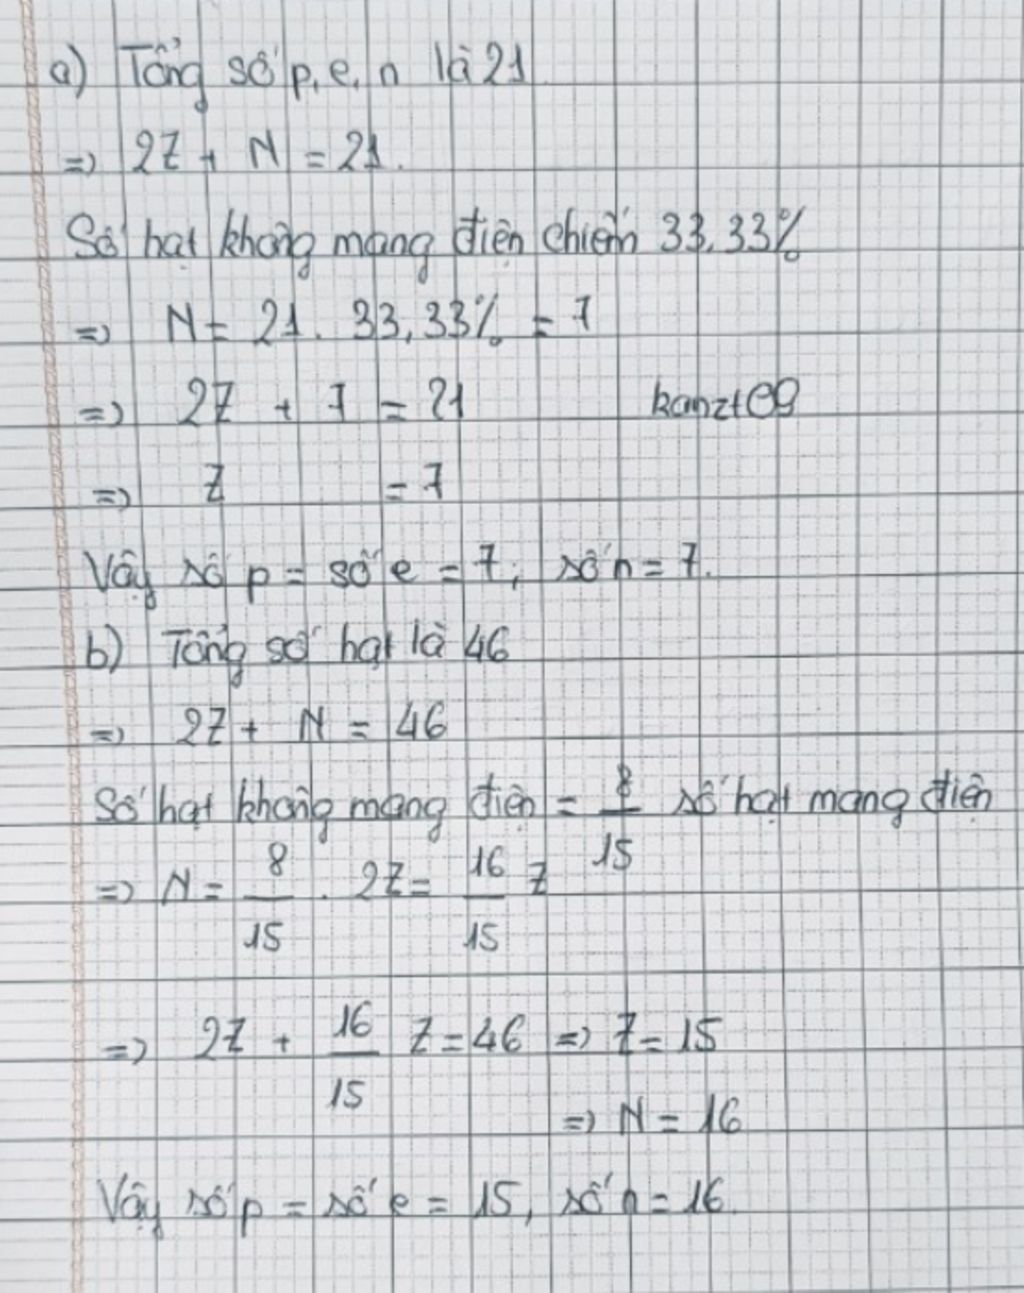 a) Tổng số p, e, n là 21
=> 2Z + N = 21.
Số hạt không mang điện chiếm 33,33%
=> N = 21 . 33,33% = 7
=> 2Z + 7 = 21 kanzt09
=> Z = 7
Vậy số p = số e = 7; số n = 7.
b) Tổng số hạt là 46
=> 2Z + N = 46
Số hạt không mang điện = 8/15 số hạt mang điện
=> N = 8/15 . 2Z = 16/15 Z
=> 2Z + 16/15 Z = 46 => Z = 15
=> N = 16
Vậy số p = số e = 15, số n = 16.